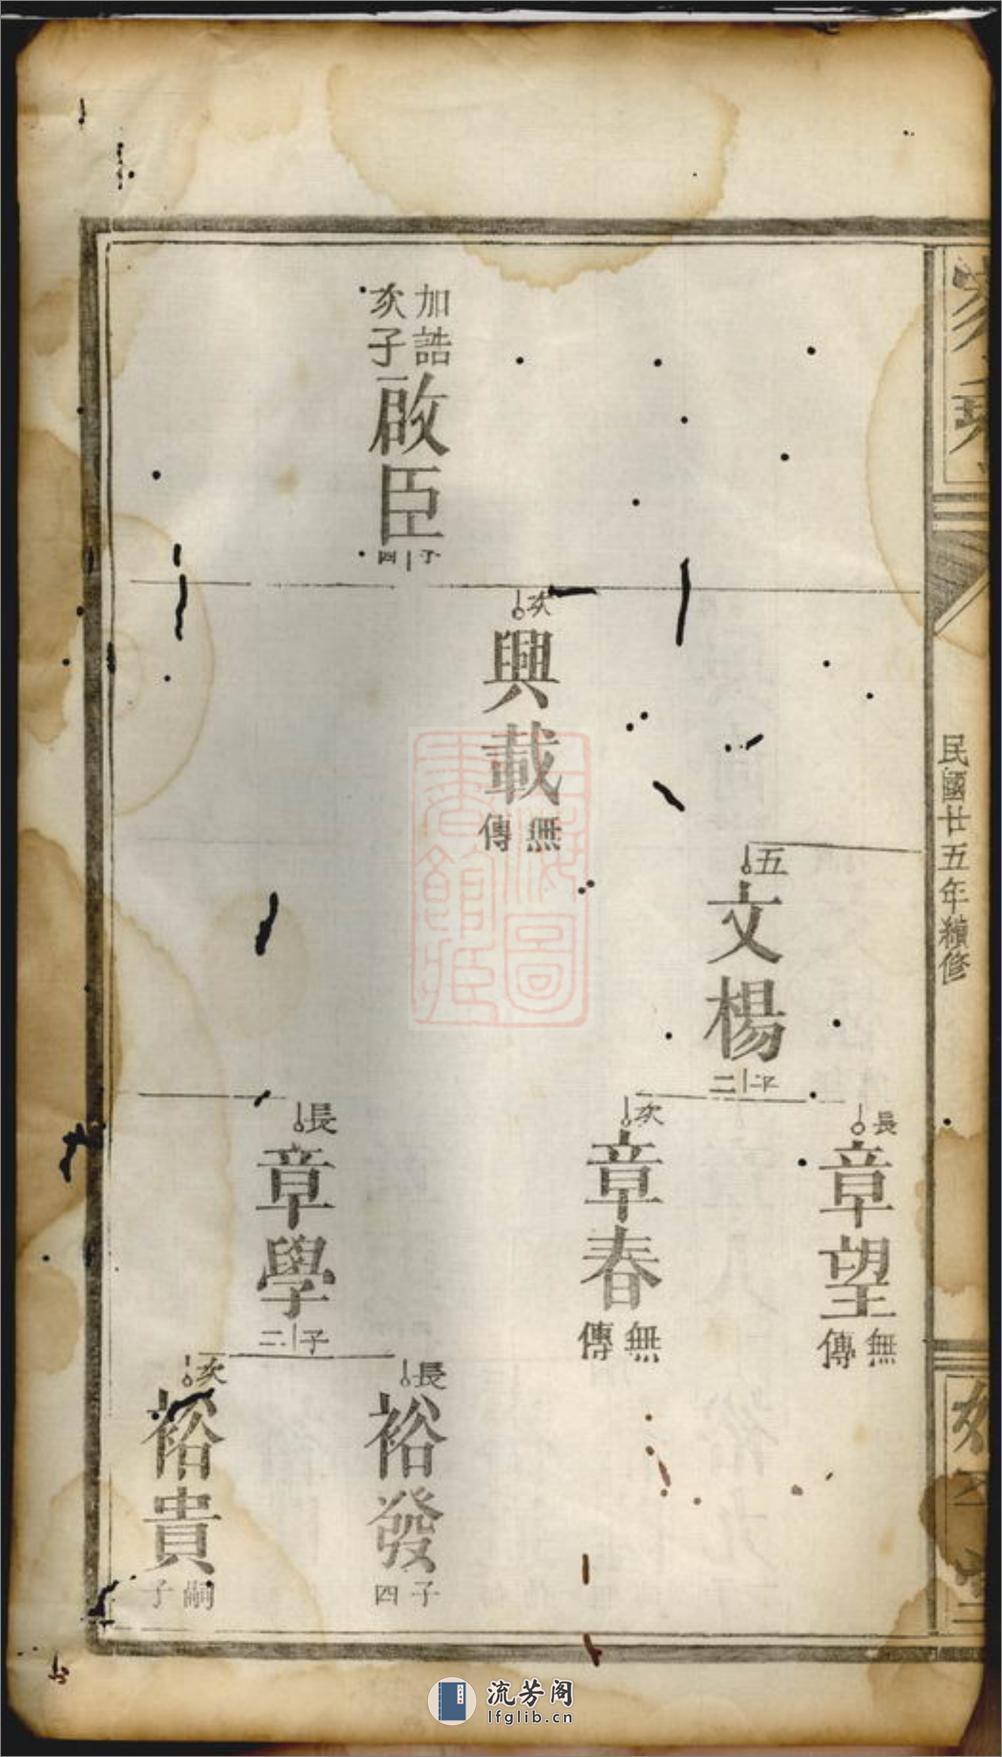 民國廿五年續修
長
章望
無傳
五
文楊
子二
次
章春
無傳
次
興載
無傳
加誥次子
啟臣
子四
長
裕發
子四
長
章學
子二
次
裕貴
嗣子
上海圖書館藏
流芳阁
lfglib.cn